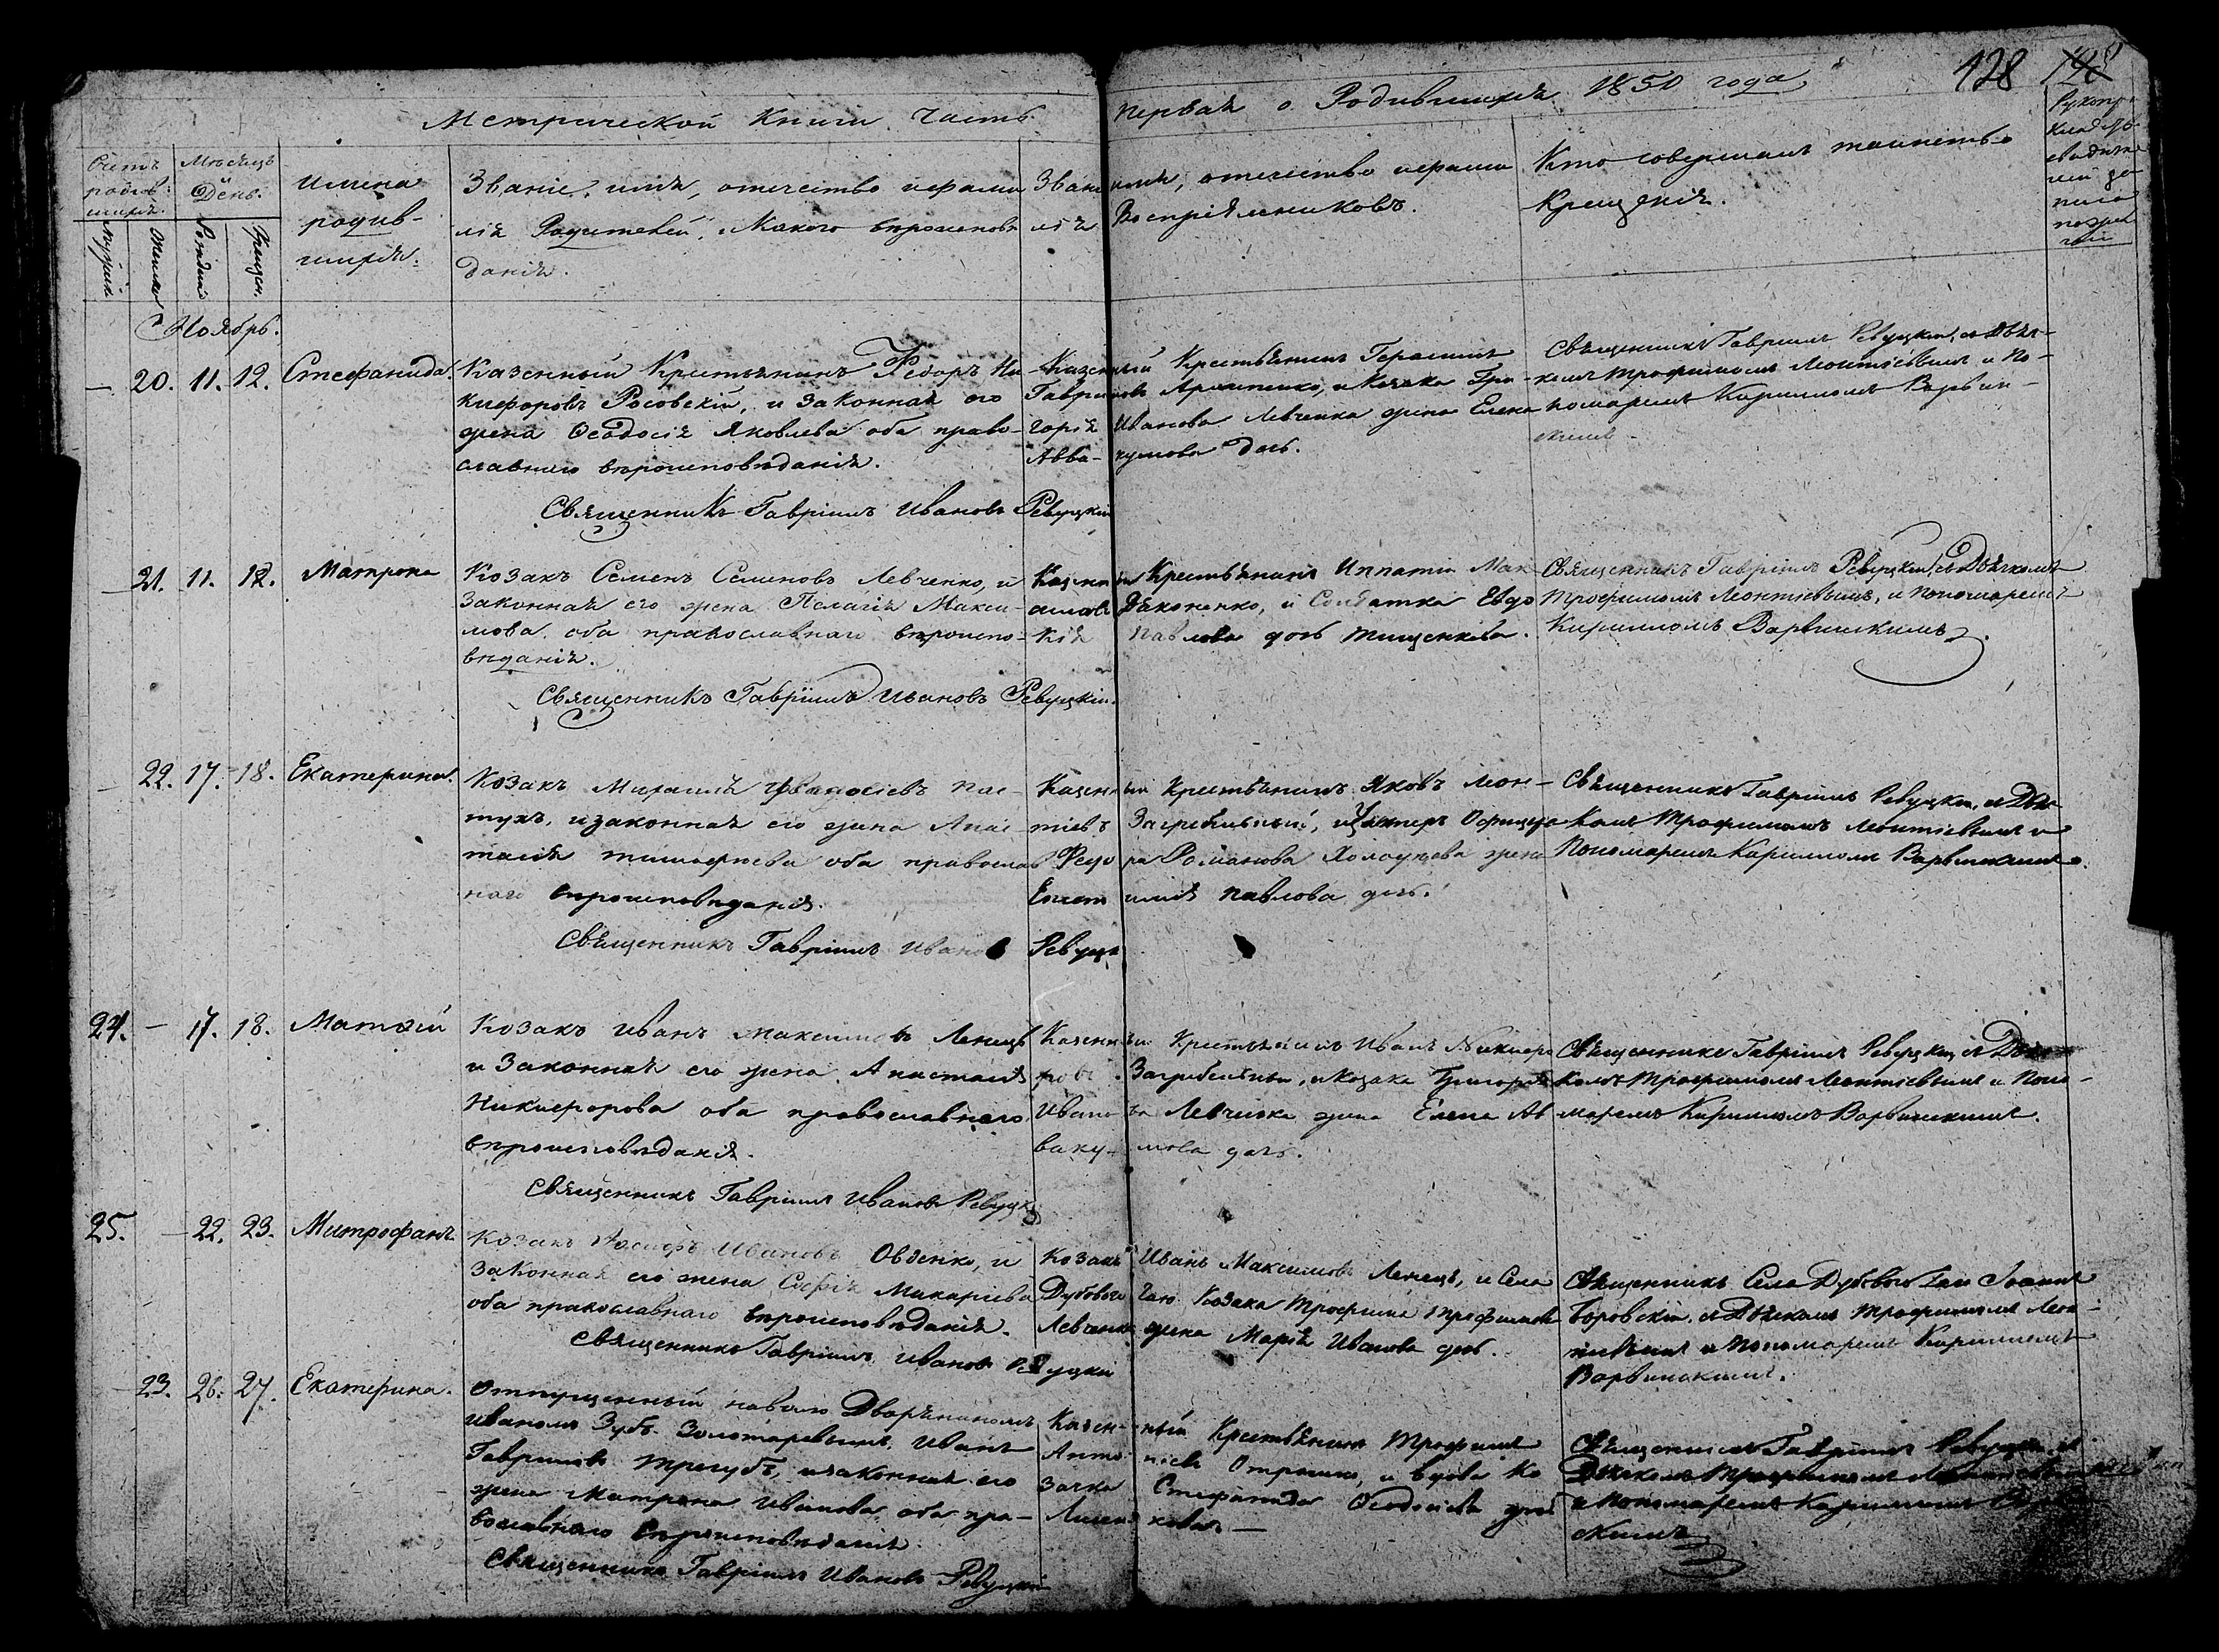 128
Метрической Книги Часть первая о Родившихся 1850 года
Счетъ родив: шихся.
Мѣсяцъ и День.
Имена родив-
шихся.
Званіе, имя, отечество и фами
лія Родителей, и какого вѣроисповѣ
данія.
Званіе имя, отечество и фами
лія Воспріемниковъ.
Кто совершалъ таинство
Крещенія.
Мужска
Женска
Рожденія
Крещен.
Ноябрь.
— 20. 11. 12. Стефанида.
Казенный Крестьянинъ Ѳедоръ Ни
кифоровъ Росовскій, и законная его
жена Ѳеодосія Яковлева оба право-
славнаго вѣроисповѣданія.
Священникъ Гавріилъ Ивановъ Ревуцкій
Казенный Крестьянинъ Герасимъ
Гавриловъ и Козака Гри-
горія Иванова Левченка жена Елена
Авва- кумова дочь.
Священникъ Гавріилъ Ревуцкій, съ Дьяч-
комъ Трофимомъ Леонтіевымъ и По-
номаремъ Кирилломъ Варвин-
скимъ.
— 21. 11. 12. Матрона
Козакъ Семенъ Семеновъ Левченко, и
законная его жена Пелагія Макси-
мова оба православнаго вѣроиспо-
вѣданія.
Священникъ Гавріилъ Ивановъ Ревуцкій.
Казенный Крестьянинъ Ипатій Мак
симовъ Дяконенко, и Солдатка Евдо
кія Павлова дочь Тищенкова.
Священникъ Гавріилъ Ревуцкій, съ Дьячкомъ
Трофимомъ Леонтіевымъ, и пономаремъ
Кирилломъ Варвинскимъ.
— 22. 17. 18. Екатерина.
Козакъ Михаилъ Ѳеодосіевъ Пас-
тухъ, и законная его жена Анас-
тасія Тимофеева оба православ
наго вѣроисповѣданія.
Священникъ Гавріилъ Ивановъ Ревуцк
Казенный Крестьянинъ Яковъ Леон-
тіевъ Загребельный, и Унтеръ Офицера
Федора Романова Холодцева жена
Епистимія Павлова дочь.
Священникъ Гавріилъ Ревуцкій, съ Дьяч
комъ Трофимомъ Леонтіевымъ и
Пономаремъ Кирилломъ Варвинскимъ.
24. — 17. 18. Матѳей
Козакъ Иванъ Максимовъ Ленецъ
и Законная его жена Анастасія
Никифорова оба православнаго
вѣроисповѣданія.
Священникъ Гавріилъ Ивановъ Ревуцк
Казенный Крестьянинъ Иванъ Никифо
ровъ Загребельный, и козака Григорія
Иванова Левченка жена Елена Ав
ваку- мова дочь.
Священникъ Гавріилъ Ревуцкій съ Дьяч
комъ Трофимомъ Леонтіевымъ и Поно-
маремъ Кирилломъ Варвинскимъ.
25. — 22. 23. Митрофанъ
Козакъ Іосифъ Ивановъ Овденко, и
законная его жена Софія Макаріева
оба православнаго вѣроисповѣданія.
Священникъ Гавріилъ Ивановъ Ревуцкій
Козакъ Иванъ Максимовъ Ленецъ, и Села
Дубоваго Гаю Козака Трофима Трофимова
Левченка жена Марія Иванова дочь.
Священникъ Села Дубоваго Гаю Іоаннъ
Боровскій, съ Дьячкомъ Трофимомъ Леон-
тіевымъ и пономаремъ Кирилломъ
Варвинскимъ.
— 23. 26. 27. Екатерина.
Отпущенный на волю Дворяниномъ
Иваномъ Зубъ-Золотаревымъ, Иванъ
Гавриловъ Трегубъ, и законная его
жена Матрона Иванова, оба пра-
вославнаго вѣроисповѣданія.
Священникъ Гавріилъ Ивановъ Ревуцкій
Казен- ный Крестьянинъ Трофимъ
Анто- ніевъ и вдова Ко
зачка Стефанида Ѳеодосіева дочь
Священникъ Гавріилъ Ревуцкій, съ
Дьячкомъ Трофимомъ Леонтіевымъ
и пономаремъ Кирилломъ Варвин
скимъ